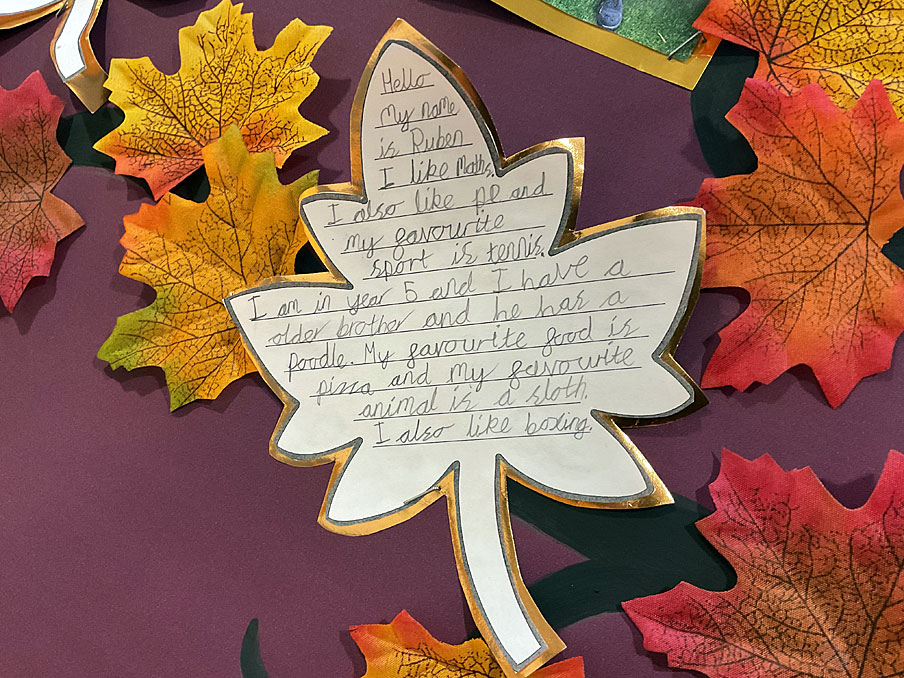 Hello
My name
is Ruben
I like Maths.
I also like PE and
my favourite
sport is tennis.
I am in year 5 and I have a
older brother and he has a
poodle. My favourite food is
pizza and my favourite
animal is a sloth.
I also like boxing.